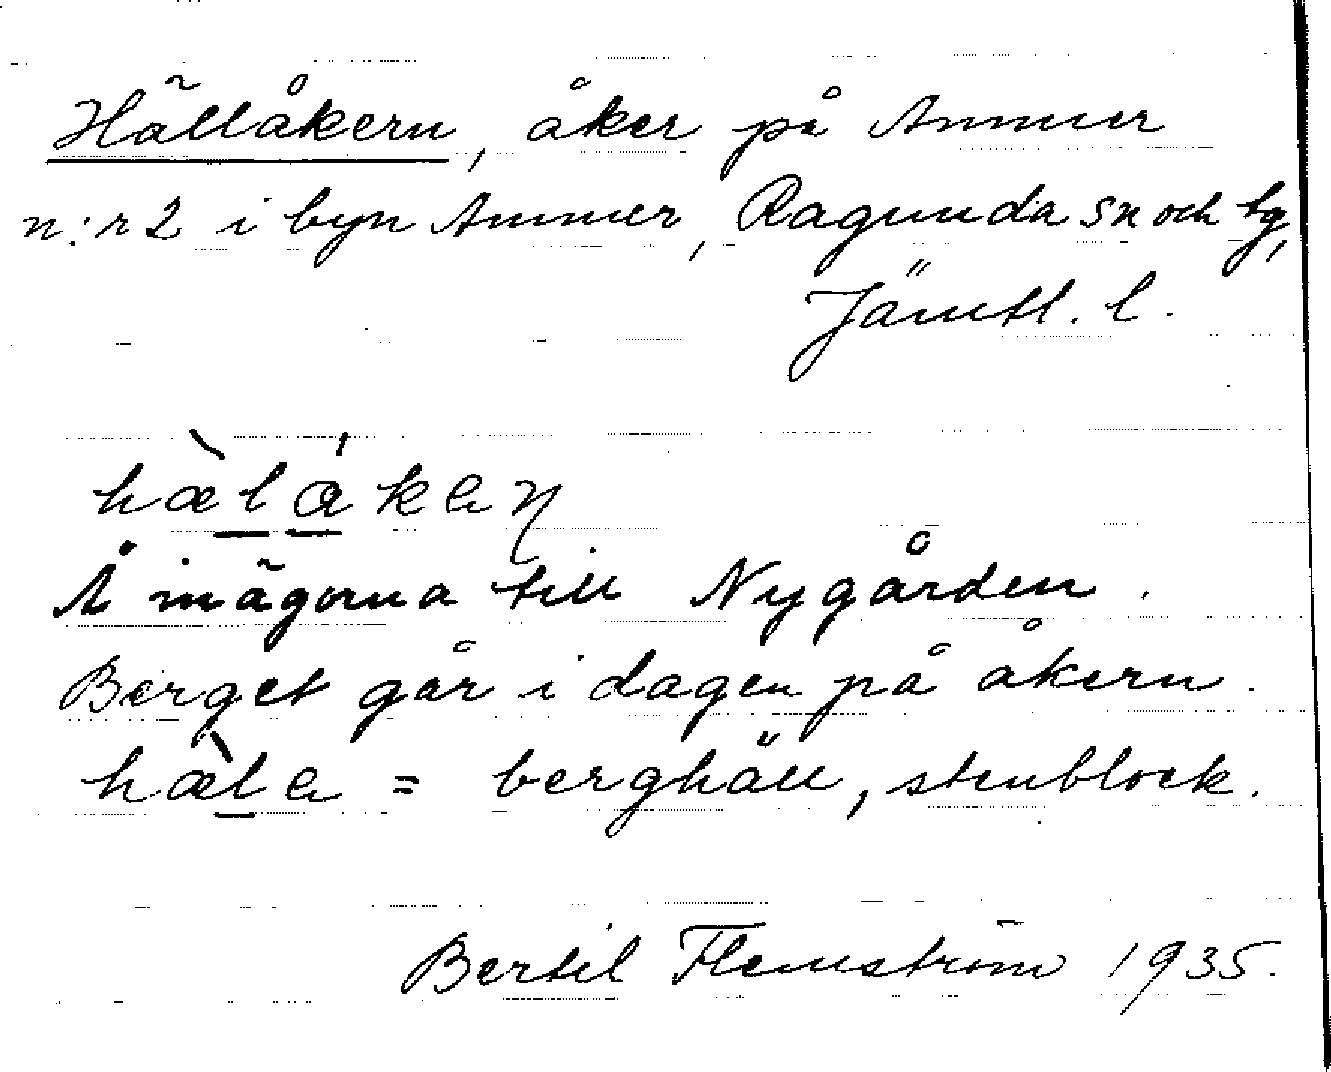 Hällåkern, åker på Ammer
n:r 2 i byn Ammer, Ragunda sn och tg,
Jämtl. l.
hæ̀lákən
Å inägorna till Nygården.
Berget går i dagen på åkern.
hæ̀lə = berghäll, stenblock.
Bertil Flemström 1935.